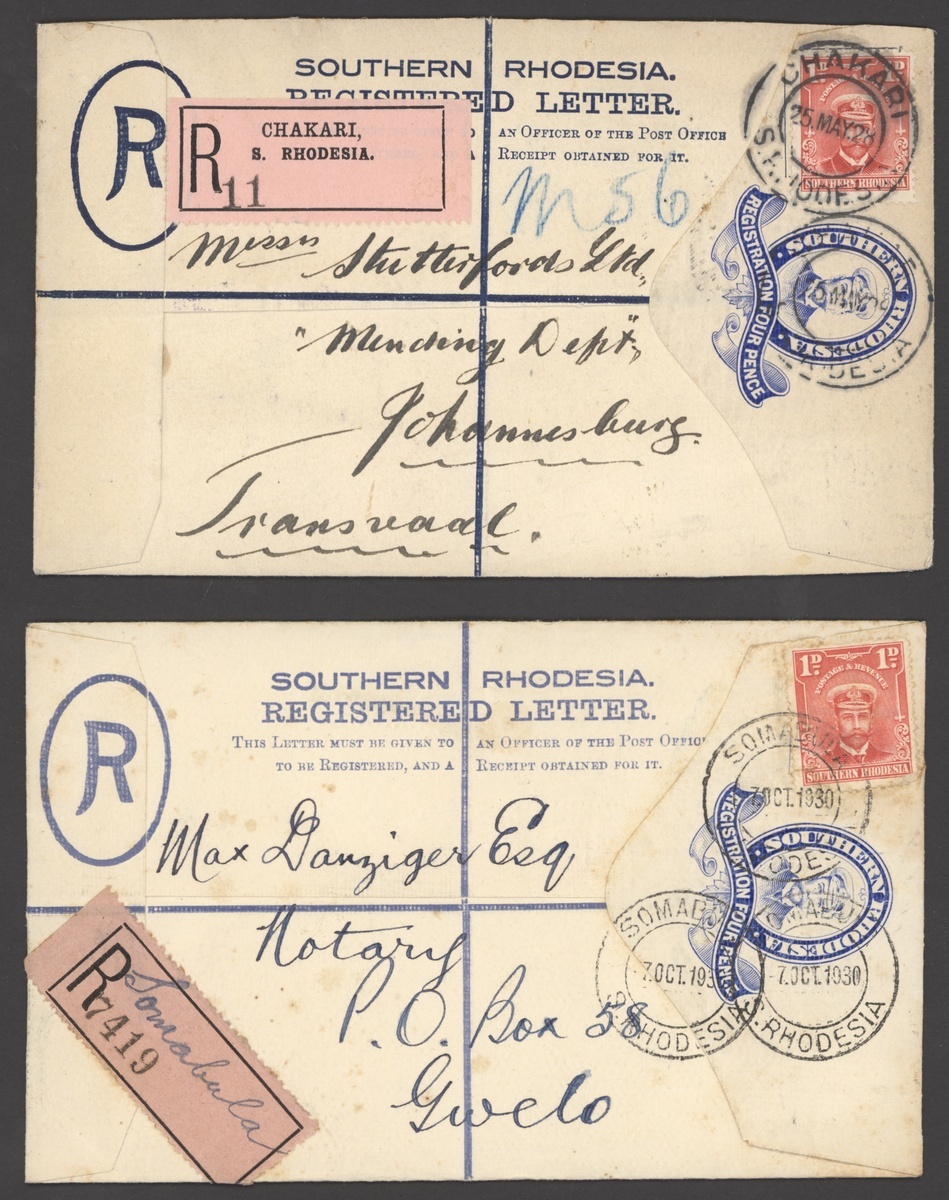 SOUTHERN RHODESIA.
REGISTERED LETTER.
AN OFFICER OF THE POST OFFICE
RECEIPT OBTAINED FOR IT.
R
R
CHAKARI,
S. RHODESIA.
11
M 56
1D
SOUTHERN RHODESIA
CHAKARI
25 MAY 28
REGISTRATION FOUR PENCE
SOUTHERN RHODESIA
Messrs Stutterfords Ltd,
"Mending Dept",
Johannesburg.
Transvaal.
SOUTHERN RHODESIA.
REGISTERED LETTER.
THIS LETTER MUST BE GIVEN TO AN OFFICER OF THE POST OFFIC
TO BE REGISTERED, AND A RECEIPT OBTAINED FOR IT.
R
1D 1D
POSTAGE & REVENUE
SOUTHERN RHODESIA
SOMABULA
7 OCT. 1930
REGISTRATION FOUR PENCE
SOUTHERN RHODESIA
Max Danziger Esq
Notary
P.O. Box 58
Gwelo
SOMABU
7 OCT. 193
S. RHODESIA
SOMABU
7 OCT. 1930
S. RHODESIA
R
7419
Somabula